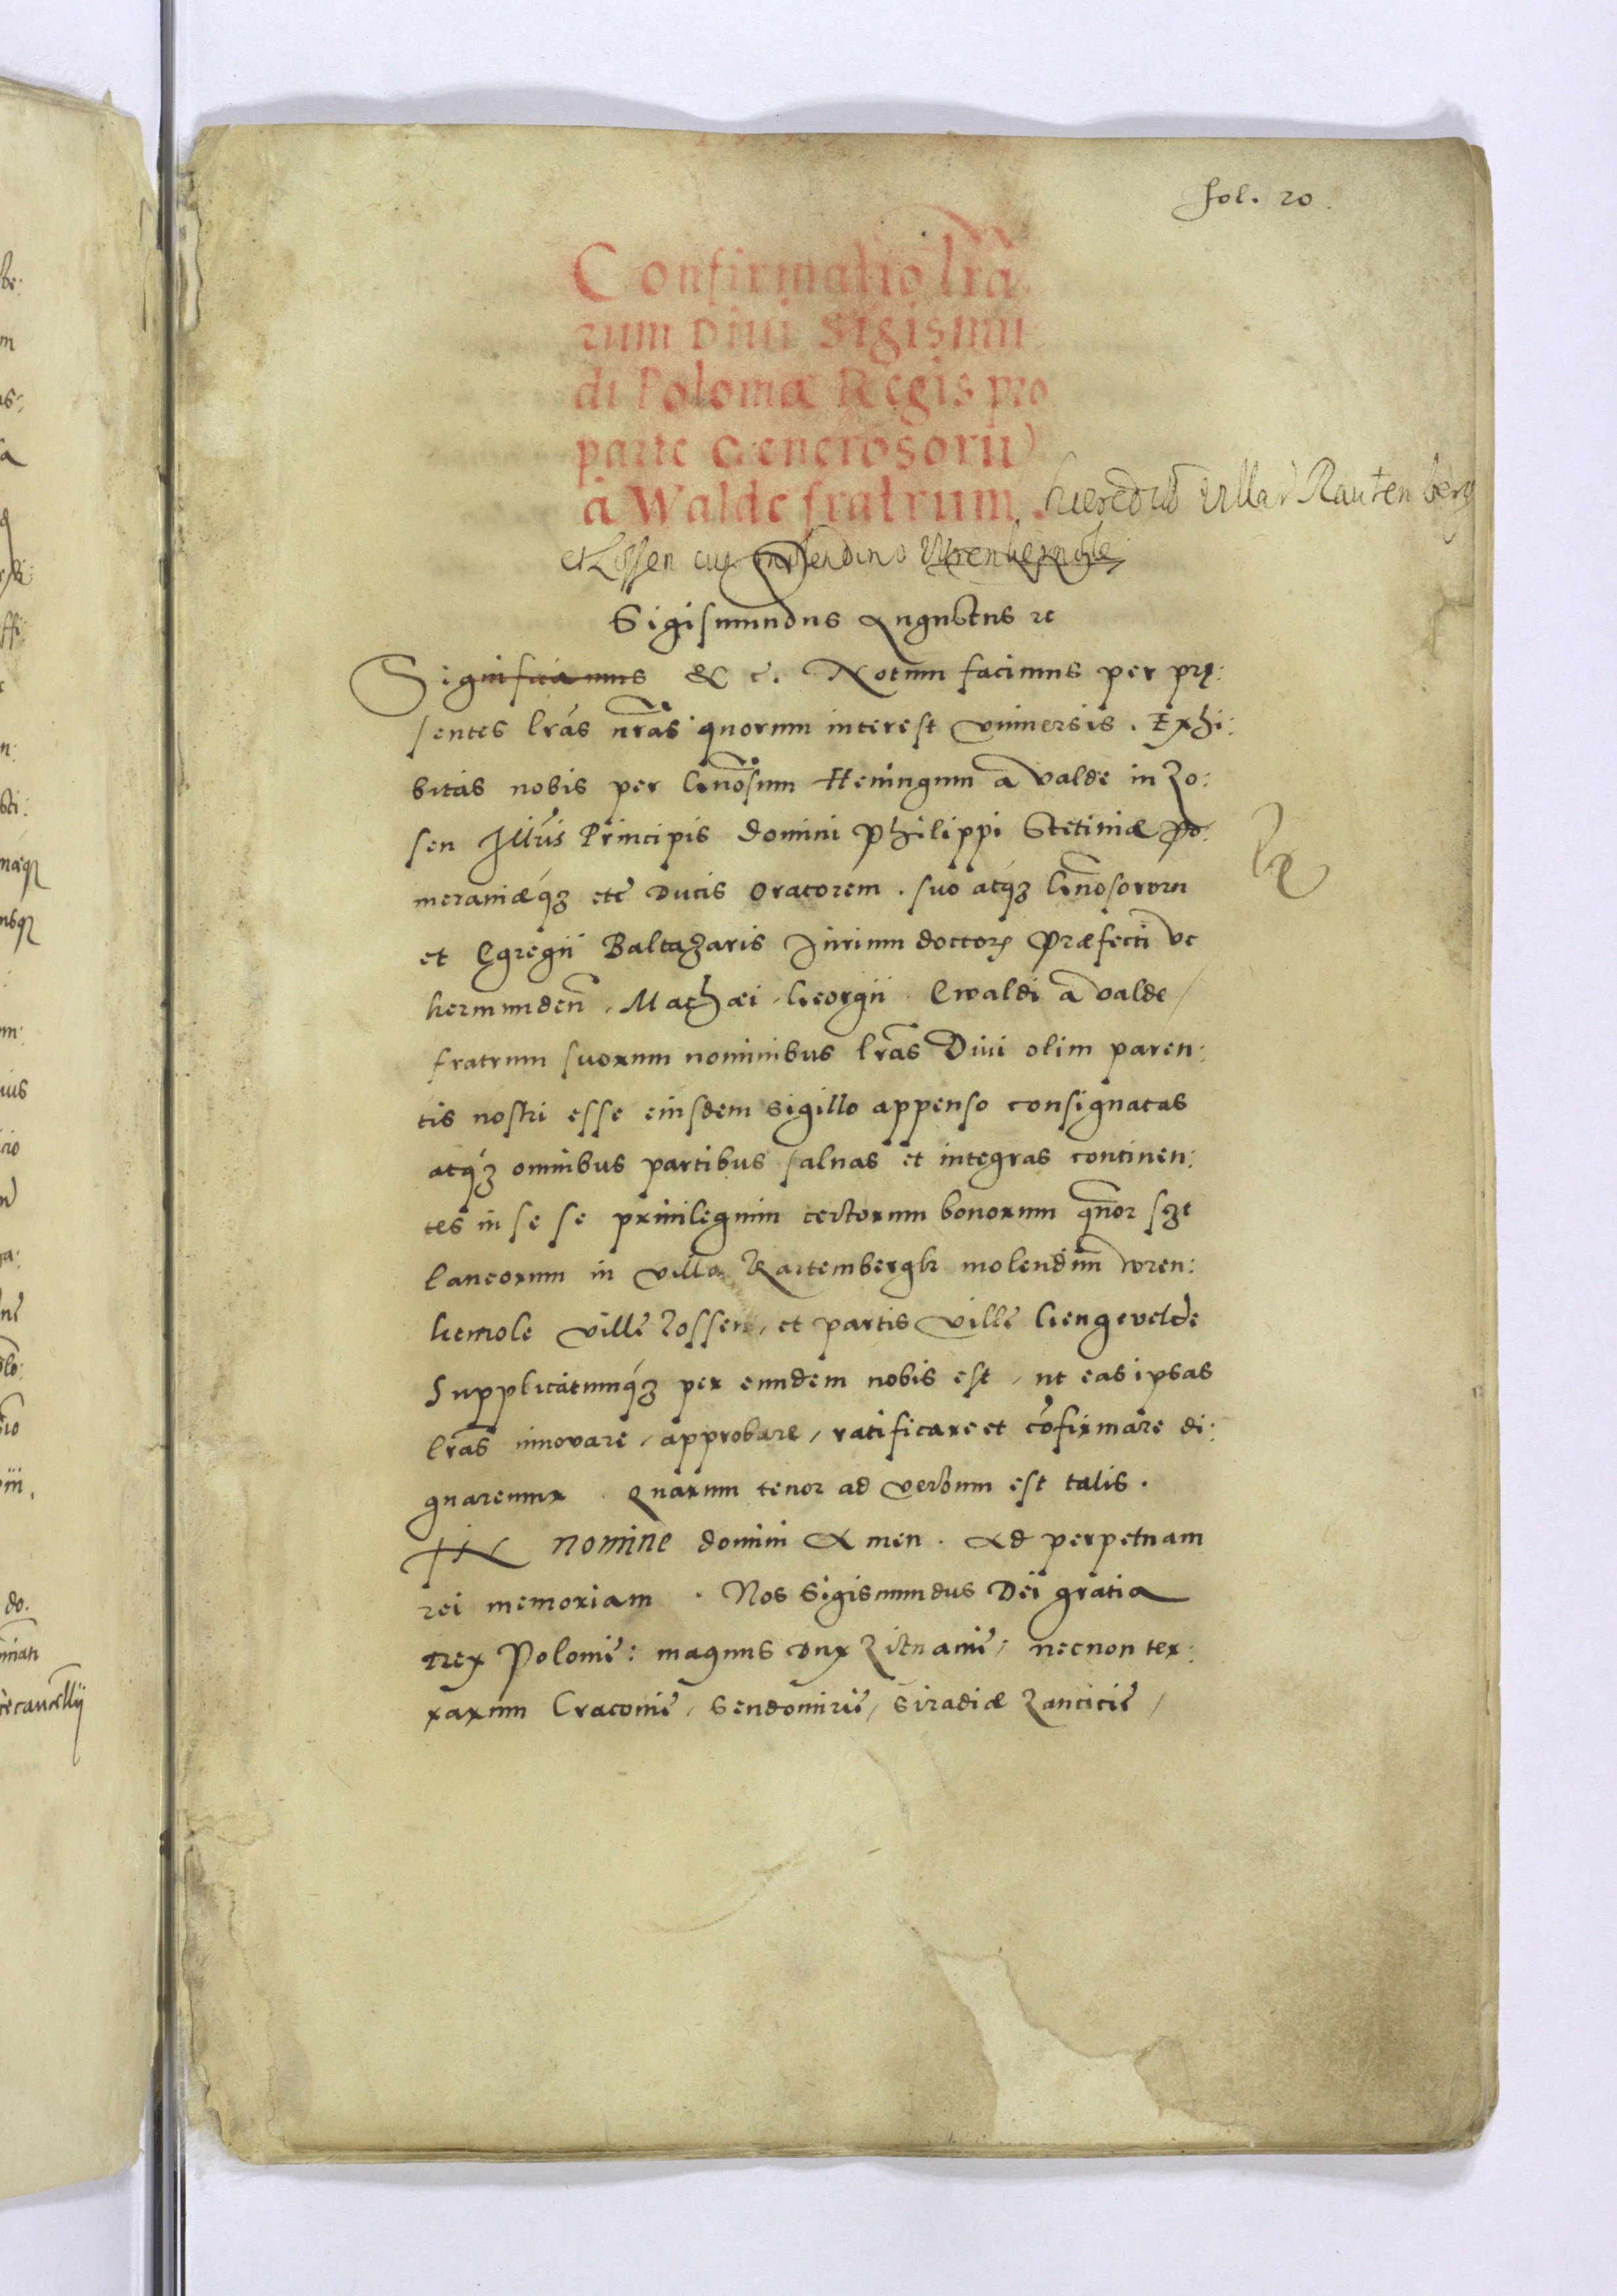 fol. 20.
Confirmatio lrã
rum Divi Sigismũ
di Poloniæ Regis pro
parte Generosorũ
à Walde fratrum. hæredũ villar Rautenberg
et Lossen cũ molendino Wrenhemole
Sigismundus Augustus ꝛc
Significamus & c. Notum facimus per prę:
sentes lrãs nrãs quorum interest vniuersis. Exhi:
bitas nobis per Gnõsum Heningum a Valde in Zo:
sen Illris Principis domini Philippi Stetiniæ po:
meraniæqꝫ etc̃ Ducis oratorem. suo atqꝫ Gnõsorum
et Egregii Baltazaris Jurium doctorꝭ Præfecti vc
kermunden̄, Machæi, Georgii Ewaldi a Valde,
fratrum suorum nominibus lrãs Diui olim paren:
tis nostri esse eiusdem sigillo appenso consignatas
atqꝫ omnibus partibus saluas et integras continen:
tes in se se priuilegium certorum bonorum quor sꝫt
laneorum in villa Rartembergk molendini̅ wren:
hemole villę Zossen, et partis villę Gengevelde
Supplicatumqꝫ per eundem nobis est, ut eas ipsas
lrãs innovare, approbare, ratificare et cõfirmare di:
gnaremur. Quarum tenor ad verbum est talis.
IN nomine domini Amen. Ad perpetuam
rei memoriam. Nos Sigismundus Dei gratia
Rex Polonię: magnus Dux Litu anię, necnon ter:
rarum Cracouię, Sendomirię, Siradiæ Lancicię,